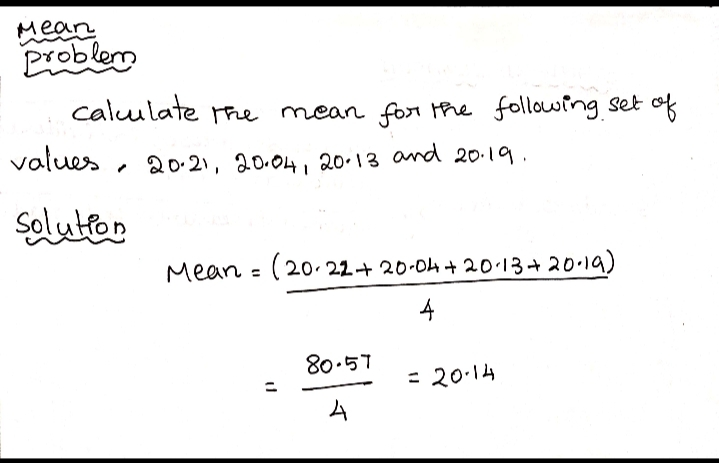 Mean
problem
calculate the mean for the following set of
values, 20.21, 20.04, 20.13 and 20.19.
Solution
Mean = (20.22 + 20.04 + 20.13 + 20.19)
4
80.57
= = 20.14
4